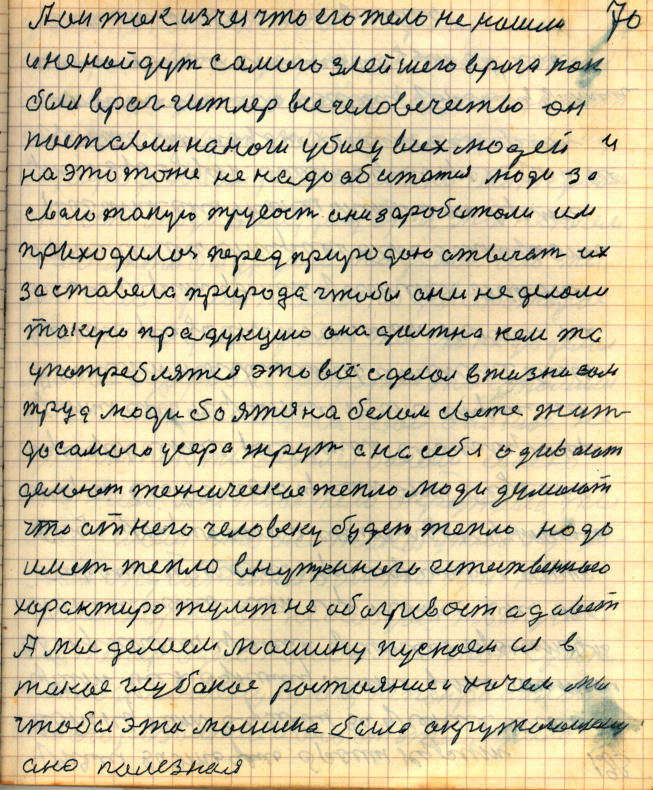 А он так изчез что его тело не нашли 70
и не найдут самого злейшего врага как
был враг гитлер все человечество он
поставил на ноги убиец всех людей и
на это тоже не надо абижатся люди за
сваю такую трусост они заработали им
приходилос перед природою атвечат их
заставела природа чтобы они не делали
такую прадукцию она должна кем то
употреблятся это всё сделал в жизни сам
труд люди боятся на белом свете жит
до самого усера жрут а на себя одивают
делают техническое тепло люди думают
что от него человеку будет тепло надо
имет тепло внутренного естественного
характиро тулуп не обогревает а давит
А мы делаем машину пускаем ея в
такое глубокое ростояние и хочем мы
чтобы эта машина была окружающему
ана полезная